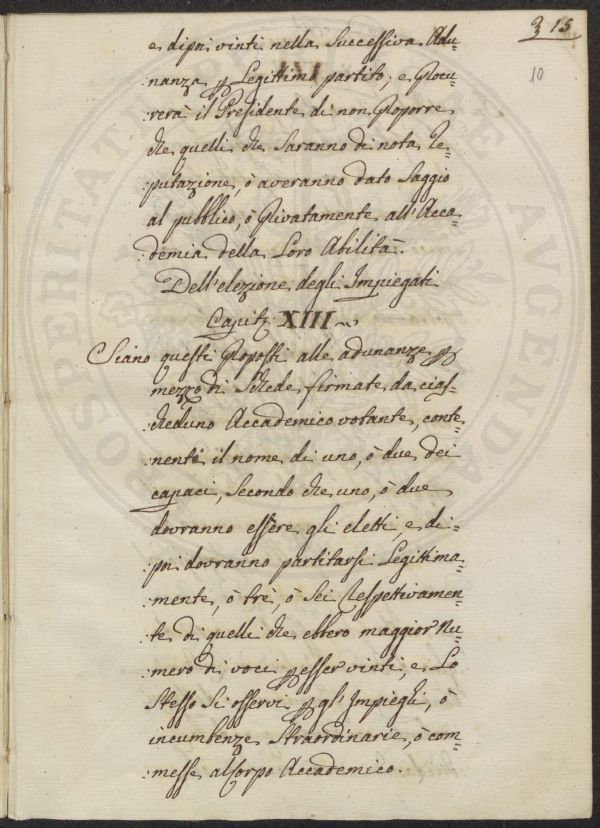 3 15
10
e dipoi vinti nella Successiva Adu=
:nanza p Legittimo partito; e Procu=
:rerà il Presidente di non Proporre
che quelli che Saranno di nota Re=
:putazione, ò averanno dato Saggio
al pubblico, ò Privatamente all'Acca=
:demia della Loro Abilità.
Dell'elezione degli Impiegati
Capit. XIII
Siano questi Proposti alle adunanze p
mezzo di Schede firmate da cias=
:cheduno Accademico votante, conte=
:nenti il nome di uno, ò due dei
capaci, Secondo che uno, ò due
dovranno essere gli eletti, e di=
:poi dovranno partitarsi Legittima=
:mente, ò trè, ò Sei Respettivamen=
:te di quelli che ebbero maggior Nu=
:mero di voci p esser vinti, e Lo
Stesso Si osservi p gl'Impieghi, ò
incumbenze Straordinarie, ò com=
:messe al Corpo Accademico.
PROSPERITATI PUBLICAE AVGENDAE